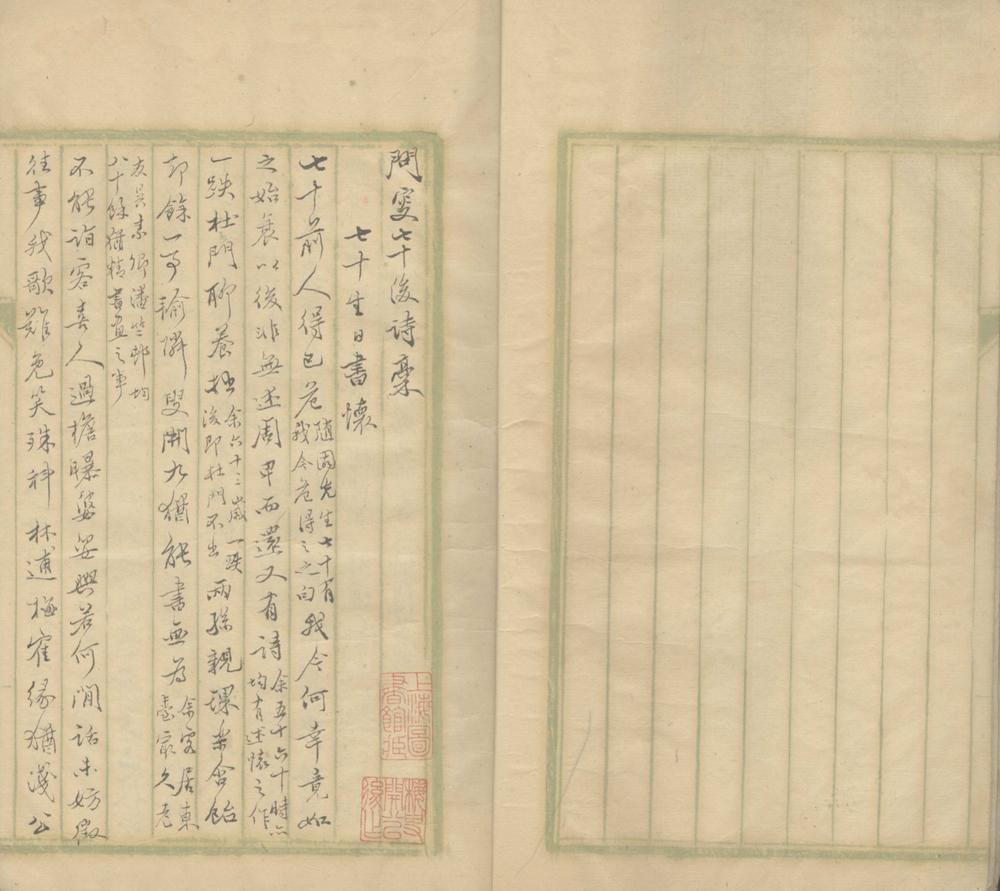 問叟七十後詩稾
七十生日書懷
七十前人得已危隨園先生七十有我今危得之之句我今何幸竟如
之始衰以後非無述周甲而還又有詩余五十六十時六均有述懷之作
一跌杜門聊養拙余六十三歲一跌後即杜門不出兩孫親課樂含飴
卻餘一事輸隣叟開九猶能書無為余寓居東臺最久老
友吳素卿潘竺郵均八十餘猶精書畫之事
不能詣客喜人過檐曝婆娑興若何閒話未妨徵
往事我歌難免笑殊科林逋梅隺緣猶淺公
上海圖書館藏